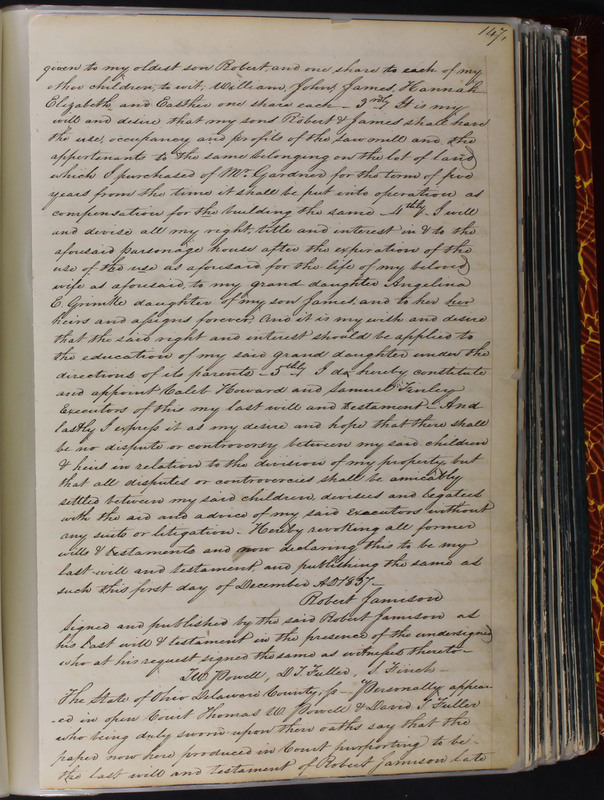 147.
given to my oldest son Robert, and one share to each of my
other children, to wit, William, John, James, Hannah
Elizabeth and Easther one share each - 3rdly It is my
will and desire that my sons Robert & James shall have
the use, occupancy and profits of the saw mill and the
appertenants to the same belonging on the lot of land
which I purchased of Mr. Gardner for the term of five
years from the time it shall be put into operation as
compensation for the building the same - 4thly - I will
and devise all my right, title and interest in & to the
aforesaid parsonage house after the expiration of the
use of the use as aforesaid for the life of my beloved
wife as aforesaid, to my grand daughter Angelina
E. daughter of my son James, and to her her
heirs and assigns forever, And it is my wish and desire
that the said right and interest should be applied to
the education of my said grand daughter under the
directions of its parents - 5thly I do hereby constitute
and appoint Caleb Howard and Samuel Finley
Executors of this my last will and testament - And
lastly I express it as my desire and hope that there shall
be no dispute or controversy between my said children
& heirs in relation to the division of my property, but
that all disputes or controversies shall be amicably
settled between my said children, devisees and legatees
with the aid and advice of my said executors without
any suits or litigation. Hereby revoking all former
wills & testaments and now declaring this to be my
last will and testament, and publishing the same as
such this first day of December AD 1837 -
Robert Jamison
Signed and published by the said Robert Jamison as
his last will & testament in the presence of the undersigned
who at his request signed the same as witnesses thereto -
T W Powell, D T Fuller, S. Finch -
The State of Ohio Delaware County, ss - Personally appear
-ed in open Court Thomas W. Powell & David T. Fuller
who being duly sworn upon their oaths say that the
paper now here produced in Court purporting to be
the last will and testament of Robert Jamison late